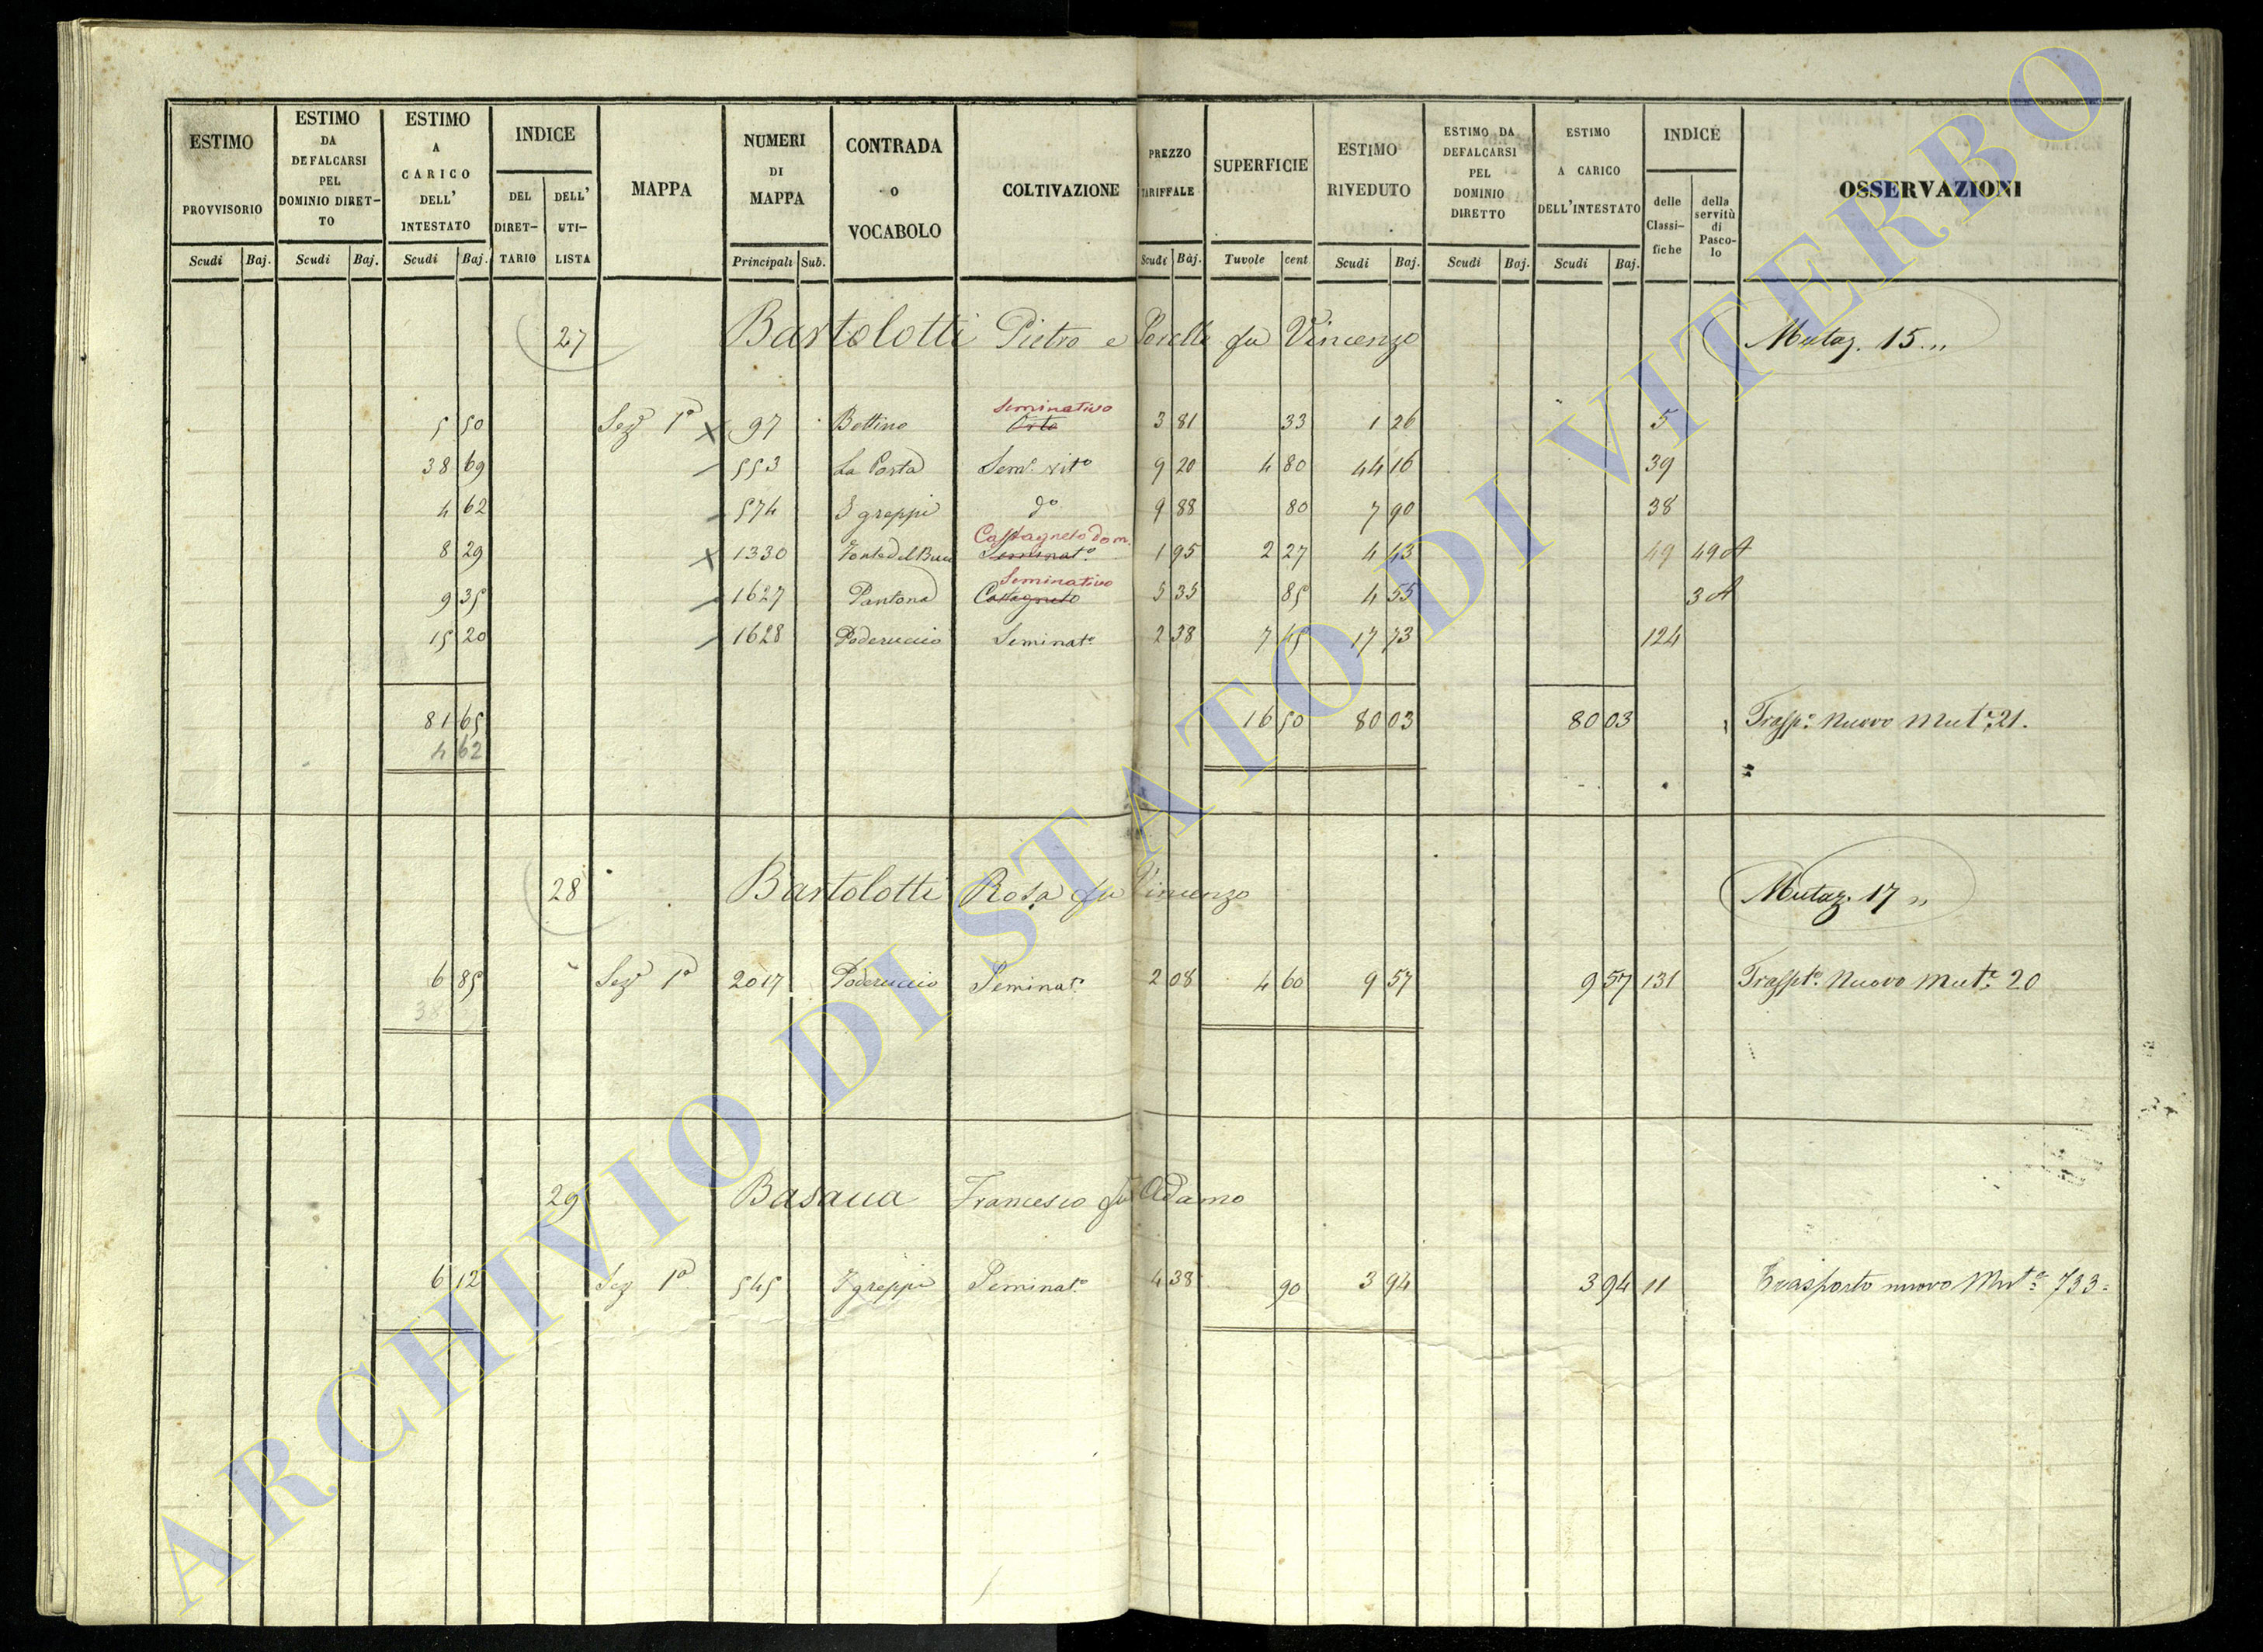 ESTIMO PROVVISORIO Scudi Baj.
ESTIMO DA DEFALCARSI PEL DOMINIO DIRET-TO Scudi Baj.
ESTIMO A CARICO DELL' INTESTATO Scudi Baj.
INDICE DEL DIRET-TARIO DELL' UTI-LISTA
MAPPA
NUMERI DI MAPPA Principali Sub.
CONTRADA o VOCABOLO
COLTIVAZIONE
PREZZO TARIFFALE Scudi Baj.
SUPERFICIE Tuvole cent
ESTIMO RIVEDUTO Scudi Baj.
ESTIMO DA DEFALCARSI PEL DOMINIO DIRETTO Scudi Baj.
ESTIMO A CARICO DELL'INTESTATO Scudi Baj.
INDICE delle Classi-fiche della servitù di Pasco-lo
OSSERVAZIONI
27 Bartolotti Pietro e Sorelle fu Vincenzo Mutaz. 15 „
Seminativo
5 50 Sez. 1ª x 97 Bottino Orto 3 81 33 1 26 5
38 69 553 La Porta Sem.º vit.º 9 20 4 80 44 16 39
4 62 574 I greppi dº 9 88 80 7 90 38
Castagneto dom.
8 29 x 1330 Seminat.º 1 95 2 27 4 43 49 49 A
Seminativo
9 35 1627 Pantana Castagneto 5 35 85 4 55 3 A
15 20 1628 Poderuccio Seminat.º 2 38 7 45 17 73 124
81 65 16 50 80 03 80 03 Trasp.º Nuovo Mut.e 21.
4 62
28 Bartolotti Rosa fu Vincenzo Mutaz. 17 „
6 85 Sez. 1ª 2017 Poderuccio Seminat.º 2 08 4 60 9 57 9 57 131 Traspt.º Nuovo Mut.e 20
29 Francesco fu Adamo
6 12 Sez 1ª 545 I greppi Seminat.º 4 38 90 3 94 3 94 11 Trasporto nuovo Mut.e 733.
ARCHIVIO DI STATO DI VITERBO